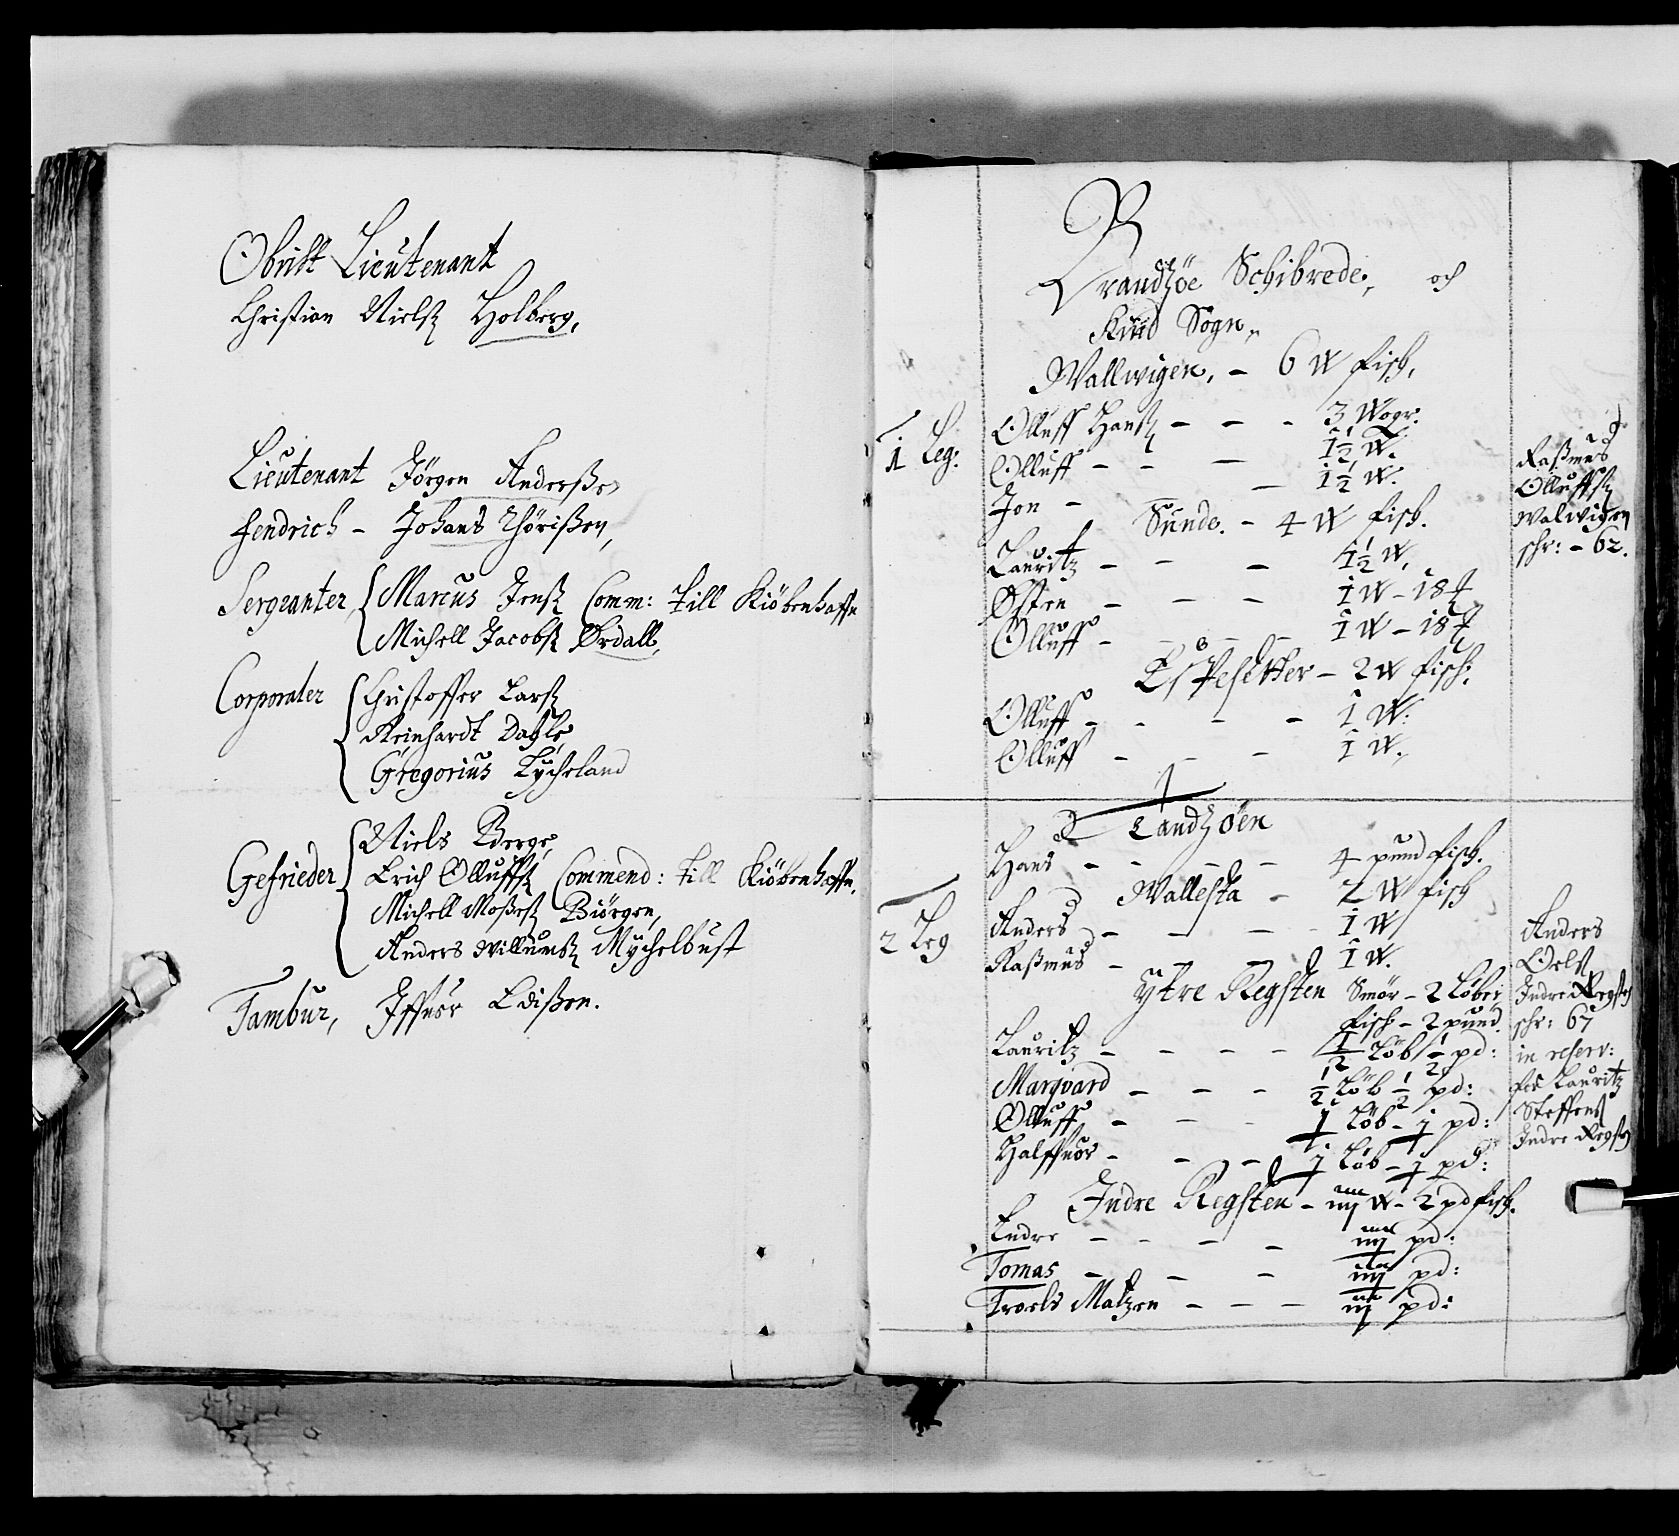 Obrist Lieutenant
Christian Nielß Holberg,
Lieutenant Jörgen Anderßen
Fendrich - Johans Thörißen,
Sergeanter Marcus Jenß Comm: till Kiöbenhaffn
Michell Jacobß Ørdall,
Corporaler Christoffer Larß
Reinhardt Dahle
Gregorius Lycheland
Niels Berge,
Gefrieder Erich Olluffß Commend: till Kiöbenhaffn,
Michell Moßeß Biörgen,
Anders Willumß Mychelbust
Tambur, Iffuer Edißen.
Brandzöe Schibrede, och
Kuud Sogn,
Wallwigen, - 6 W fisch,
1 Leg: Olluff Hanß - - - 3 W ogr:
Olluff - - - 1½ W.
Jon - - 1½ W.
Sunde. - 4 W fisch.
Lauritz - - - 1½ W,
Østen - - - 1 W - 18
Olluff - - - - 1 W - 18
Espesetter - 2 W fisch.
Olluff - - - - 1 W:
Olluff - - - 1 W.
Raßmus
Olluffß
Walwigen
schr: - 62.
Sandzöen
Hans - - - - 4 pund fisch.
Wallesta - 2 W fisch
2 Leg Anders - - - - 1 W
Raßmus - - - 1 W.
Ytre Regsten Smör - 2 Løber
fisch - 2 pund
Lauritz - - - - ½ Löb ½ pd:
Marqvard - - - ½ Löb ½ pd:
Olluff - - - ½ Löb - ½ pd:
Halffuor - - - ½ Löb - ½ pd:
Indre Regsten - W - 2 pd fisch.
Endre - - - - pd:
Tomas - - - pd:
Troels Matzen - - - pd:
Anders
Oelß
Indre Regsten
schr: 67
in reserv:
for Lauritz
Steffenß
Indre Regsten